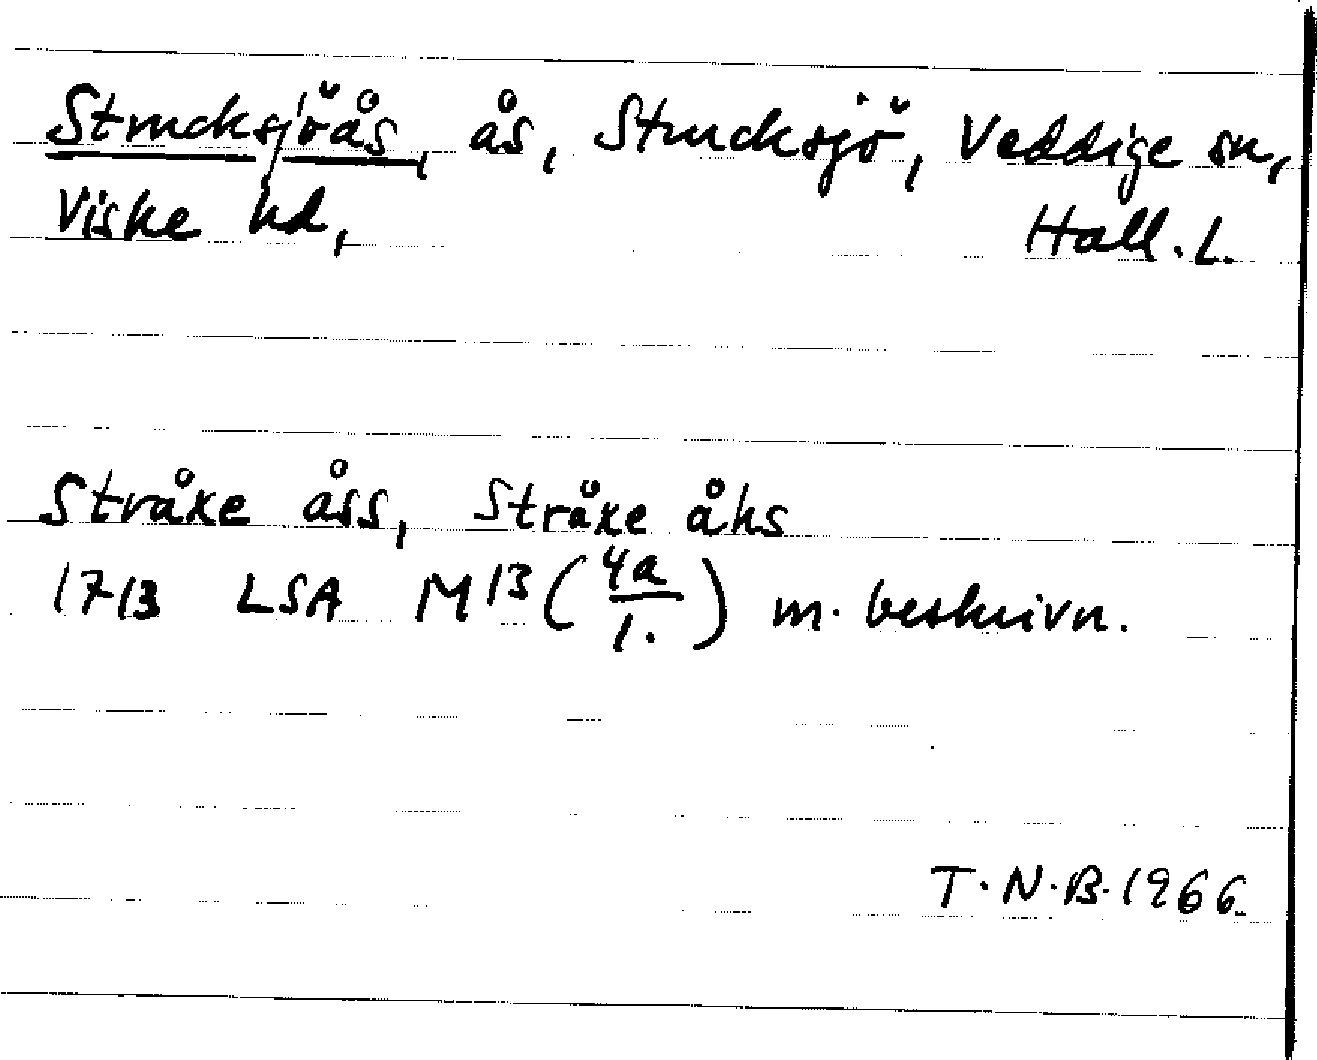 Strucksjöås, ås, Strucksjö, Veddige sn,
Viske hd, Hall. l.
Stråxe åss, Stråxe åhs
1713 LSA M13 (4a/1.) m. beskrivn.
T. N. B. 1966.